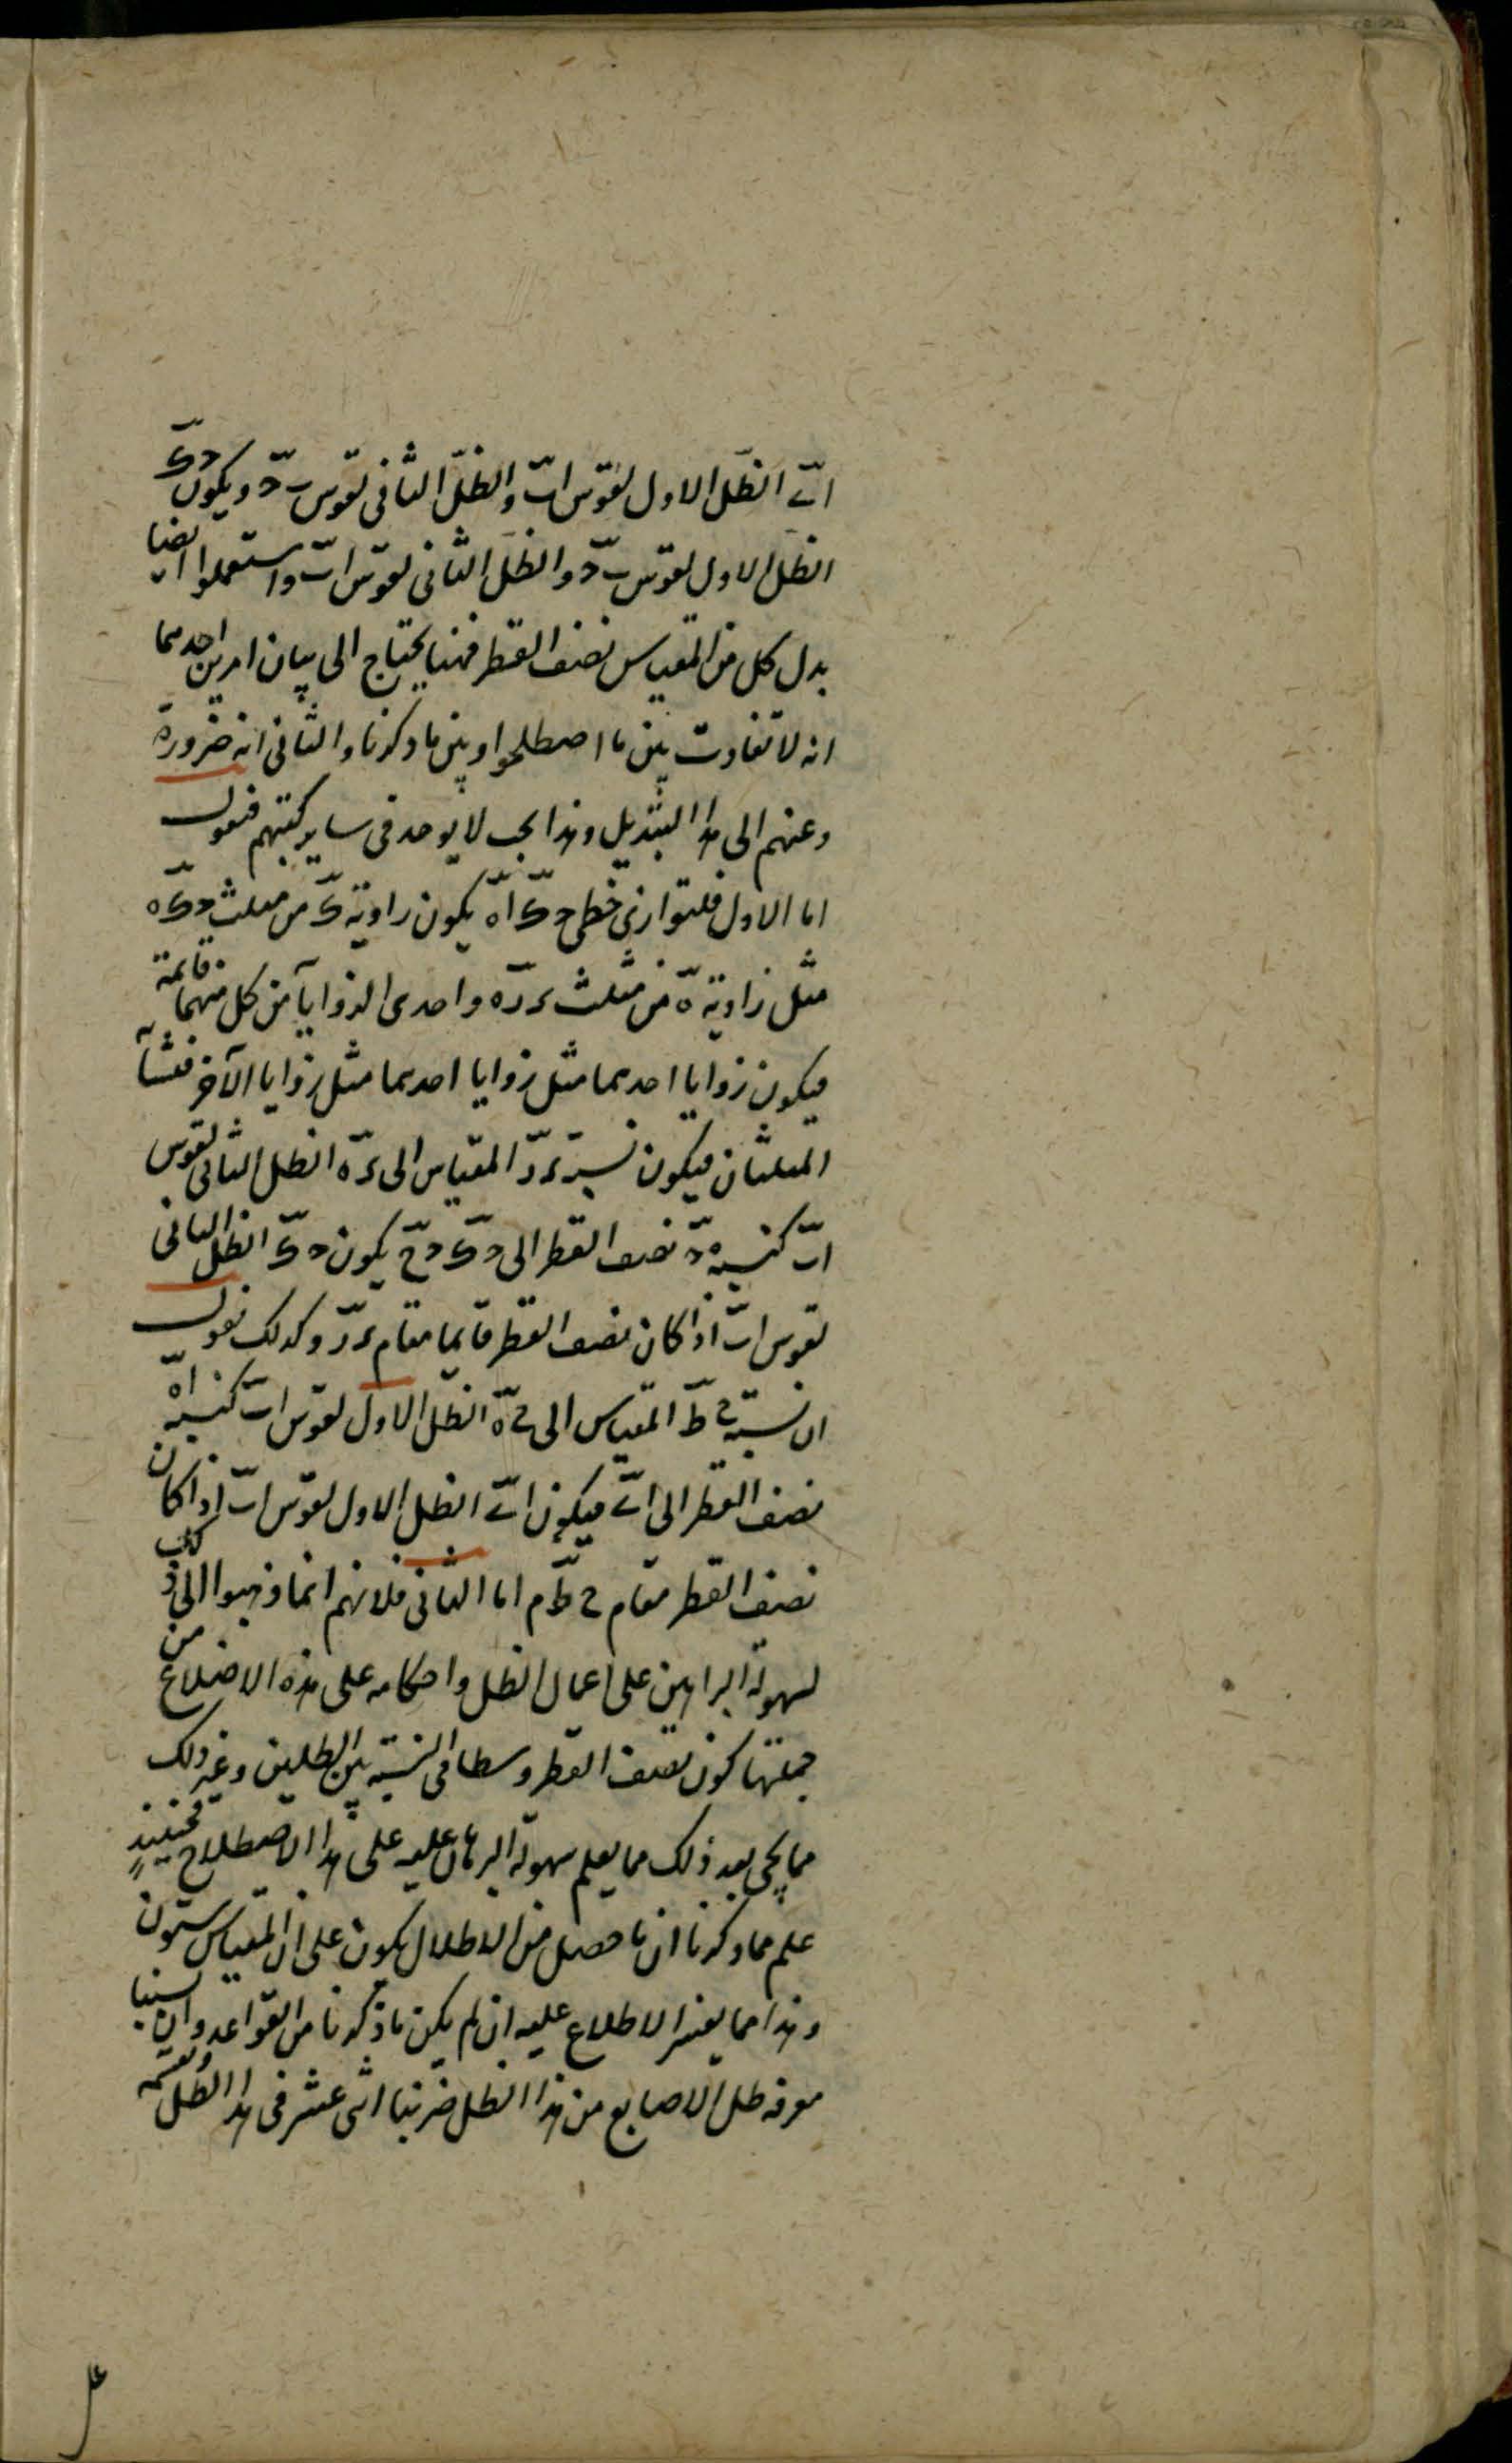 اى الظل الاول لقوس اب والظل الثانى لقوس ب د ويكون د ك
الظل الاول لقوس ب د والظل الثانى لقوس اب واستعملوا ايضا
بدل كل من المقياس نصف القطر فههنا يحتاج الى بيان امرين احدهما
انه لا تفاوت بين ما اصطلحوا وبين ما ذكرنا والثانى انه ضرورة
دعتهم الى هذا التبديل وهذا بحث لا يوجد فى ساير كتبهم فنقول
اما الاول فلتوازى خطى د ك ا ه يكون زاوية ك من مثلث د ك ه
مثل زاوية ه من مثلث ر ز ه واحدى الزوايا من كل منهما قايمة
فيكون زوايا احدهما مثل زوايا احدهما مثل زوايا الآخر فتشابه
المثلثان فيكون نسبة ر ز المقياس الى ر ه الظل الثانى لقوس
اب كنسبة ه د نصف القطر الى د ك وح يكون د ك الظل الثانى
لقوس اب اذا كان نصف القطر قايما مقام ر ز وكذلك نقول
ان نسبة ح ط المقياس الى ح ه الظل الاول لقوس اب كنسبة ا ه
نصف القطر الى اى فيكون اى الظل الاول لقوس اب اذا كان
نصف القطر مقام ح ط م اما الثانى فلانهم انما ذهبوا الى ذلك
لسهولة البراهين على اعمال الظل واحكامه على هذه الاضلاع من
جملتها كون نصف القطر وسطا فى النسبة بين الظلين وغير ذلك
مما يجى بعد ذلك مما يعلم سهولة البرهان عليه على هذا الاصطلاح فحينئذٍ
علم مما ذكرنا ان ما حصل من الاظلال يكون على ان المقياس ستون
وهذا مما يعسر الاطلاع عليه ان لم يكن ما ذكرنا من القواعد وان شينا
معرفه ظل الاصابع من هذا الظل ضربنا اثنى عشر فى هذا الظل